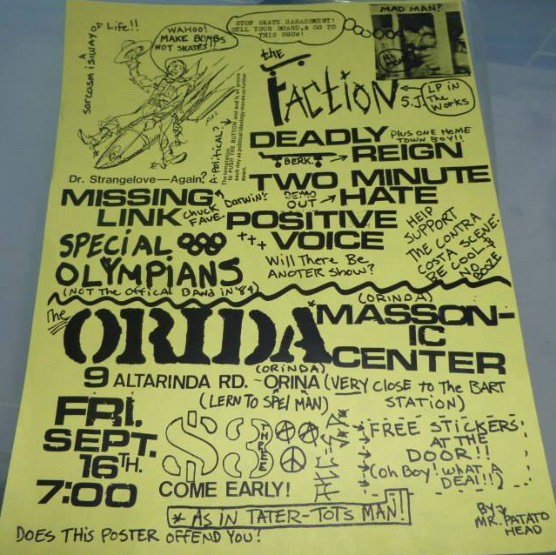 A sarcasm is a way of Life!!
WAHOO!
MAKE BOMBS
NOT SKATES!!
STOP SKATE HARASSMENT!
SELL YOUR BOARD, & GO TO
THIS SHOW!
MAD MAN?
the
FACTION
S.J.
LP IN
The
WORKS
Dr. Strangelove—Again?
A-Political?
DEADLY
REIGN
PLUS ONE HOME
TOWN BOY!!
BERK.
TWO MINUTE
HATE
DEMO
OUT
MISSING
LINK
CHUCK
Darwin's
FAVE
POSITIVE
VOICE
+++
SPECIAL
OLYMPIANS
(NOT The OFFicAL BAND in '84)
Will There Be
ANOTER Show?
HELP
SUPPORT
THE CONTRA
COSTA SCENE:
BE COOL &
NO
BOOZE
The
ORIDA
(ORINDA)
MASSON-
IC
CENTER
9 ALTARINDA RD. ~ ORINA (VERY CLOSE TO THE BART
STATION)
(ORINDA)
(LERN TO SPEl MAN)
FRI.
SEPT.
16TH.
7:00
$3
THREE
COME EARLY!
FREE STICKERS
AT THE
DOOR!!
(Oh Boy! WHAT A
DEAl!!)
* AS IN TATER-TOTS MAN!
BY
MR. PATATO
HEAD
DOES THIS POSTER OFFEND YOU?